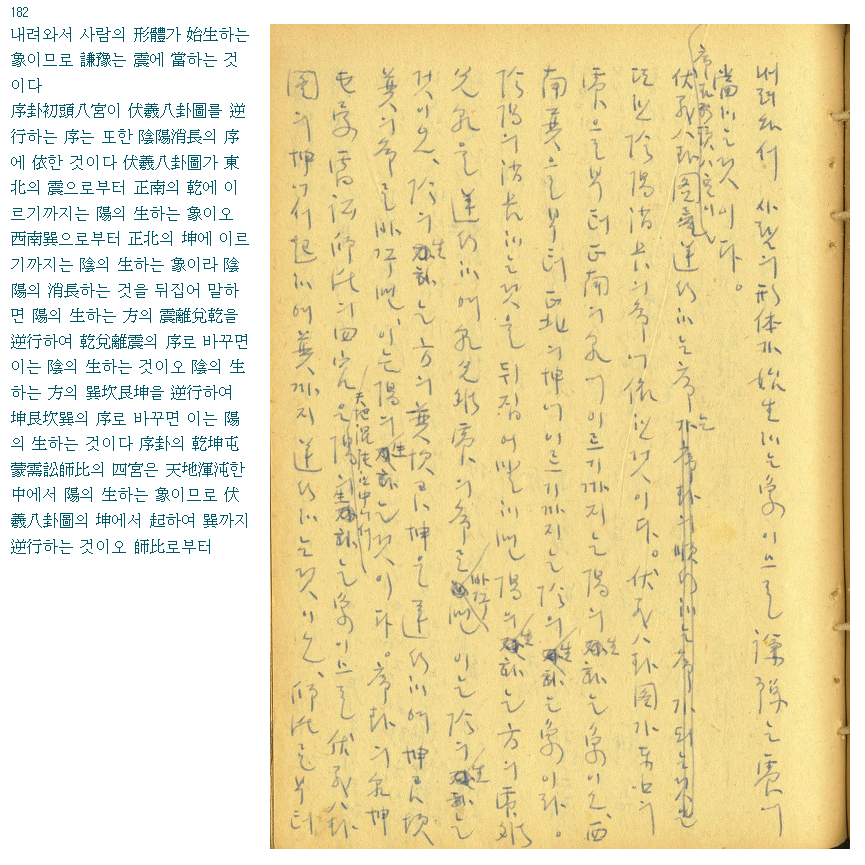 182
내려와서 사람의 形體가 始生하는
象이므로 謙豫는 震에 當하는 것
이다
序卦初頭八宮이 伏羲八卦圖를 逆
行하는 序는 또한 陰陽消長의 序
에 依한 것이다 伏羲八卦圖가 東
北의 震으로부터 正南의 乾에 이
르기까지는 陽의 生하는 象이오
西南巽으로부터 正北의 坤에 이르
기까지는 陰의 生하는 象이라 陰
陽의 消長하는 것을 뒤집어 말하
면 陽의 生하는 方의 震離兌乾을
逆行하여 乾兌離震의 序로 바꾸면
이는 陰의 生하는 것이오 陰의 生
하는 方의 巽坎艮坤을 逆行하여
坤艮坎巽의 序로 바꾸면 이는 陽
의 生하는 것이다 序卦의 乾坤屯
蒙需訟師比의 四宮은 天地渾沌한
中에서 陽의 生하는 象이므로 伏
羲八卦圖의 坤에서 起하여 巽까지
逆行하는 것이오 師比로부터
내려와서 사람의 形体가 始生하는 象이므로 謙豫는 震에
當하는 것이다。
序卦初頭八宮이
伏羲八卦圖를 逆行하는 序는
또한 陰陽消長의 序에 依한 것이다。伏羲八卦圖가 東北의
震으로부터 正南의 乾에 이르기까지는 陽의 生하는 象이오、西
南巽으로부터 正北의 坤에 이르기까지는 陰의 生하는 象이라。
陰陽의 消長하는 것을 뒤집어 말하면 陽의 生하는 方의 震離
兌乾을 逆行하여 乾兌離震의 序로 바꾸면 이는 陰의 生하는
것이오、陰의 生하는 方의 巽坎艮坤을 逆行하여 坤艮坎
巽의 序로 바꾸면、이는 陽의 生하는 것이다。序卦의 乾坤
屯蒙需訟師比의 四宮은 天地混沌한 中에서 陽의 生하는 象이므로 伏羲八卦
圖의 坤에서 起하여 巽까지 逆行하는 것이오、師比로부터